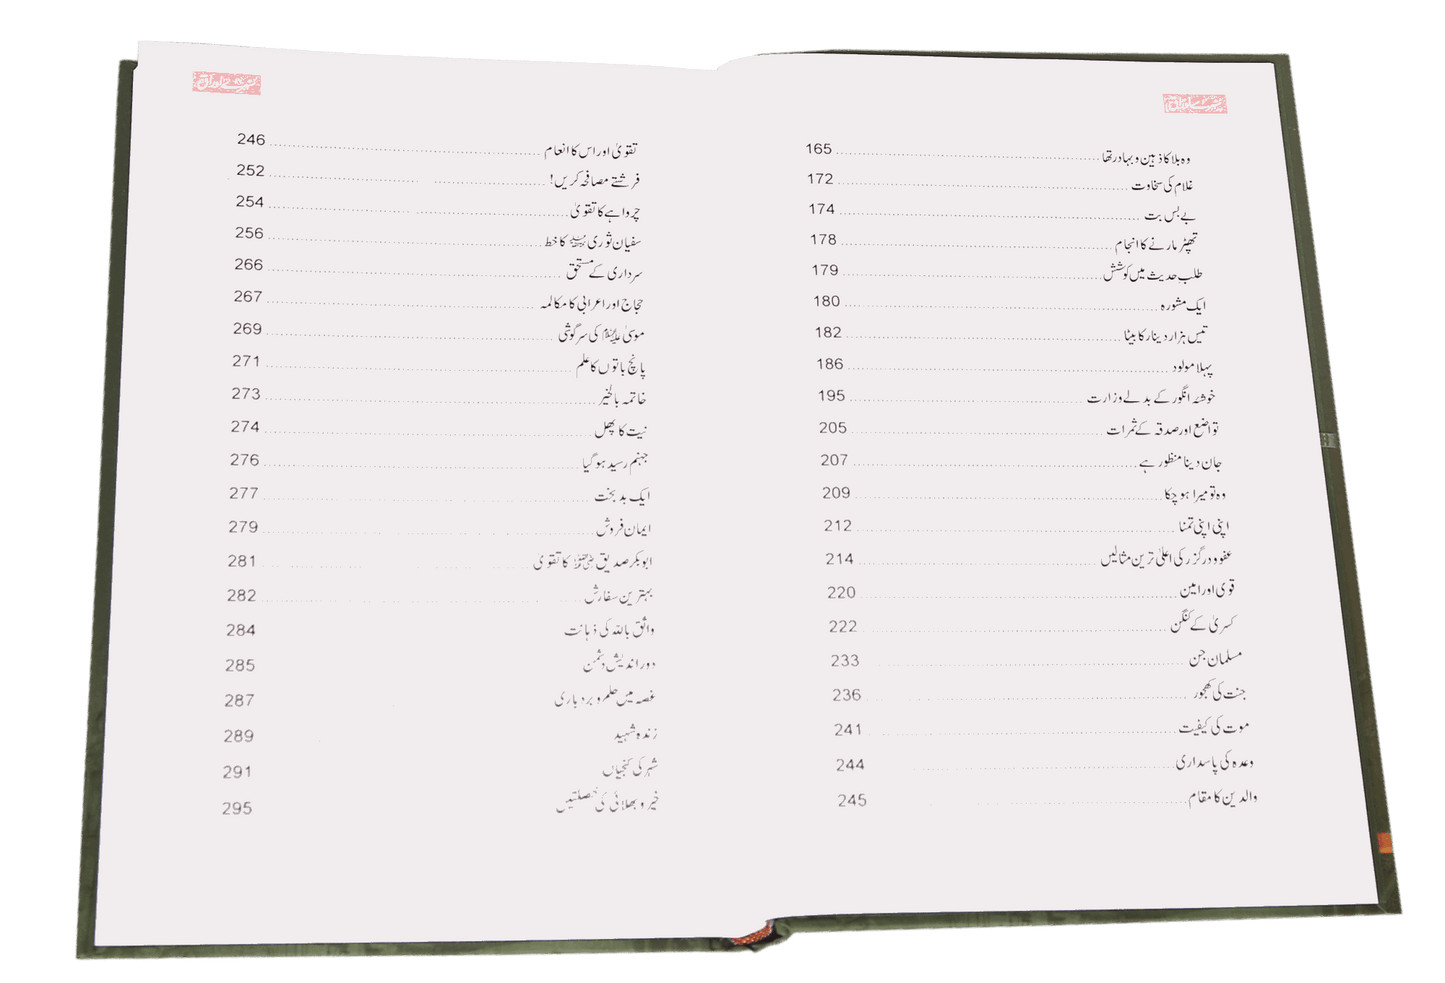 سنہرے اوراق
وہ بلا کا ذہین و بہادر تھا 165
غلام کی سخاوت 172
بے بس بت 174
تھپڑ مارنے کا انجام 178
طلب حدیث میں کوشش 179
ایک مشورہ 180
تیس ہزار دینار کا بیٹا 182
پہلا مولود 186
خوشہ انگور کے بدلے وزارت 195
تواضع اور صدقہ کے ثمرات 205
جان دینا منظور ہے 207
وہ تو میرا ہو چکا 209
اپنی اپنی تمنا 212
عفو و درگزر کی اعلیٰ ترین مثالیں 214
قوی اور امین 220
کسریٰ کے کنگن 222
مسلمان جن 233
جنت کی کھجور 236
موت کی کیفیت 241
وعدہ کی پاسداری 244
والدین کا مقام 245
سنہرے اوراق
تقویٰ اور اس کا انعام 246
فرشتے مصافحہ کریں! 252
چرواہے کا تقویٰ 254
سفیان ثوری رحمہ اللہ کا خط 256
سرداری کے مستحق 266
حجاج اور اعرابی کا مکالمہ 267
موسیٰ علیہ السلام کی سرگوشی 269
پانچ باتوں کا علم 271
خاتمہ بالخیر 273
نیت کا پھل 274
جہنم رسید ہو گیا 276
ایک بدبخت 277
ایمان فروش 279
ابوبکر صدیق رضی اللہ عنہ کا تقویٰ 281
بہترین سفارش 282
واثق باللہ کی ذہانت 284
دور اندیش دشمن 285
غصہ میں حلم و بردباری 287
زندہ شہید 289
شہر کی کنجیاں 291
خیر و بھلائی کی خصلتیں 295